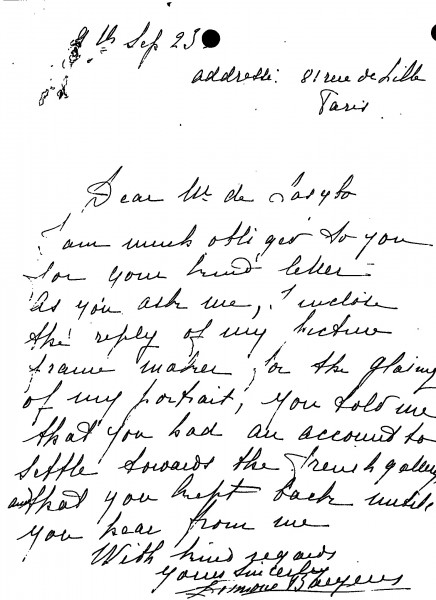 9th Sep 23
address: 81 rue de Lille
Paris
Dear Mr de
I am much obliged to you
for your kind letter
As you ask me, I inclose
the reply of my picture
frame maker for the glazing
of my portrait, you told me
that you had an account to
settle towards the French gallery
and that you kept back untill
you hear from me
With kind regards
Yours sincerely
Simone